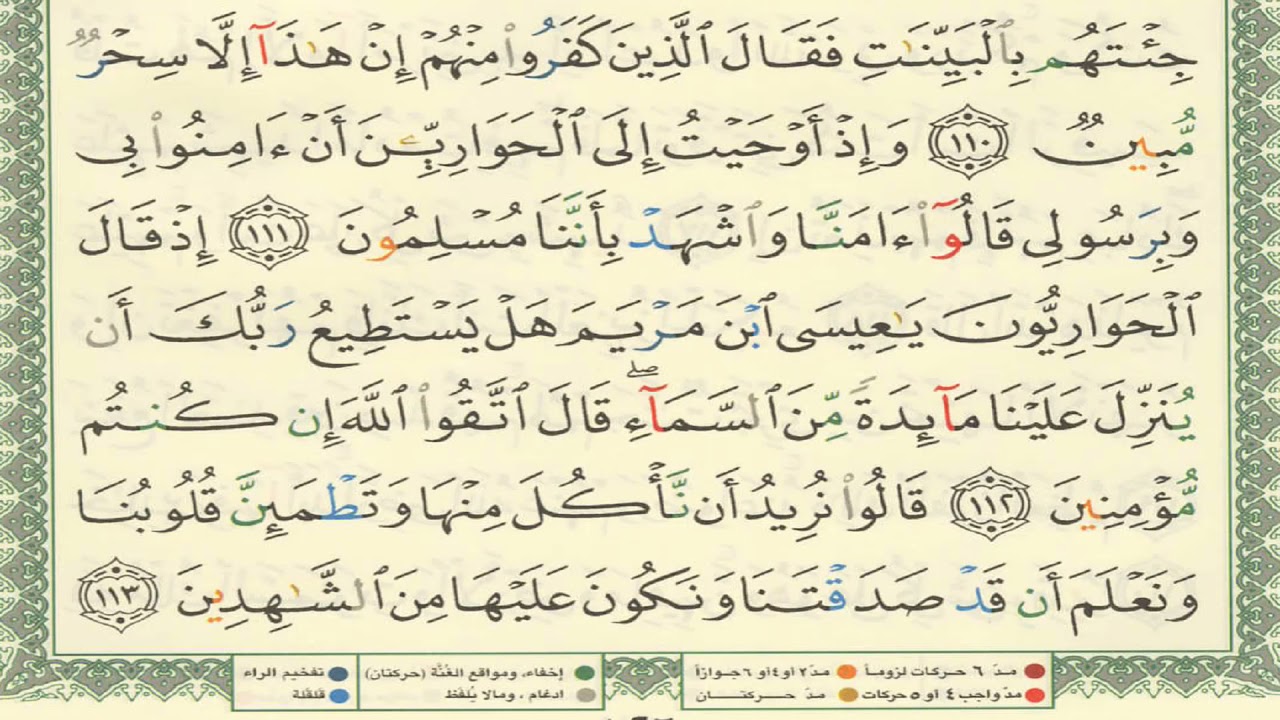 جِئْتَهُم بِٱلْبَيِّنَٰتِ فَقَالَ ٱلَّذِينَ كَفَرُوا۟ مِنْهُمْ إِنْ هَٰذَآ إِلَّا سِحْرٌ
مُّبِينٌ ١١٠ وَإِذْ أَوْحَيْتُ إِلَى ٱلْحَوَارِيِّۦنَ أَنْ ءَامِنُوا۟ بِى
وَبِرَسُولِى قَالُوٓا۟ ءَامَنَّا وَٱشْهَدْ بِأَنَّنَا مُسْلِمُونَ ١١١ إِذْ قَالَ
ٱلْحَوَارِيُّونَ يَٰعِيسَى ٱبْنَ مَرْيَمَ هَلْ يَسْتَطِيعُ رَبُّكَ أَن
يُنَزِّلَ عَلَيْنَا مَآئِدَةً مِّنَ ٱلسَّمَآءِ ۖ قَالَ ٱتَّقُوا۟ ٱللَّهَ إِن كُنتُم
مُّؤْمِنِينَ ١١٢ قَالُوا۟ نُرِيدُ أَن نَّأْكُلَ مِنْهَا وَتَطْمَئِنَّ قُلُوبُنَا
وَنَعْلَمَ أَن قَدْ صَدَقْتَنَا وَنَكُونَ عَلَيْهَا مِنَ ٱلشَّٰهِدِينَ ١١٣
مدّ ٦ حركات لزوماً مدّ ٢ أو ٤ أو ٦ جوازاً إخفاء، ومواقع الغُنَّة (حركتان) تفخيم الراء
مدّ واجب ٤ أو ٥ حركات مدّ حركتان ادغام، ومالا يُلفَظ قلقلة